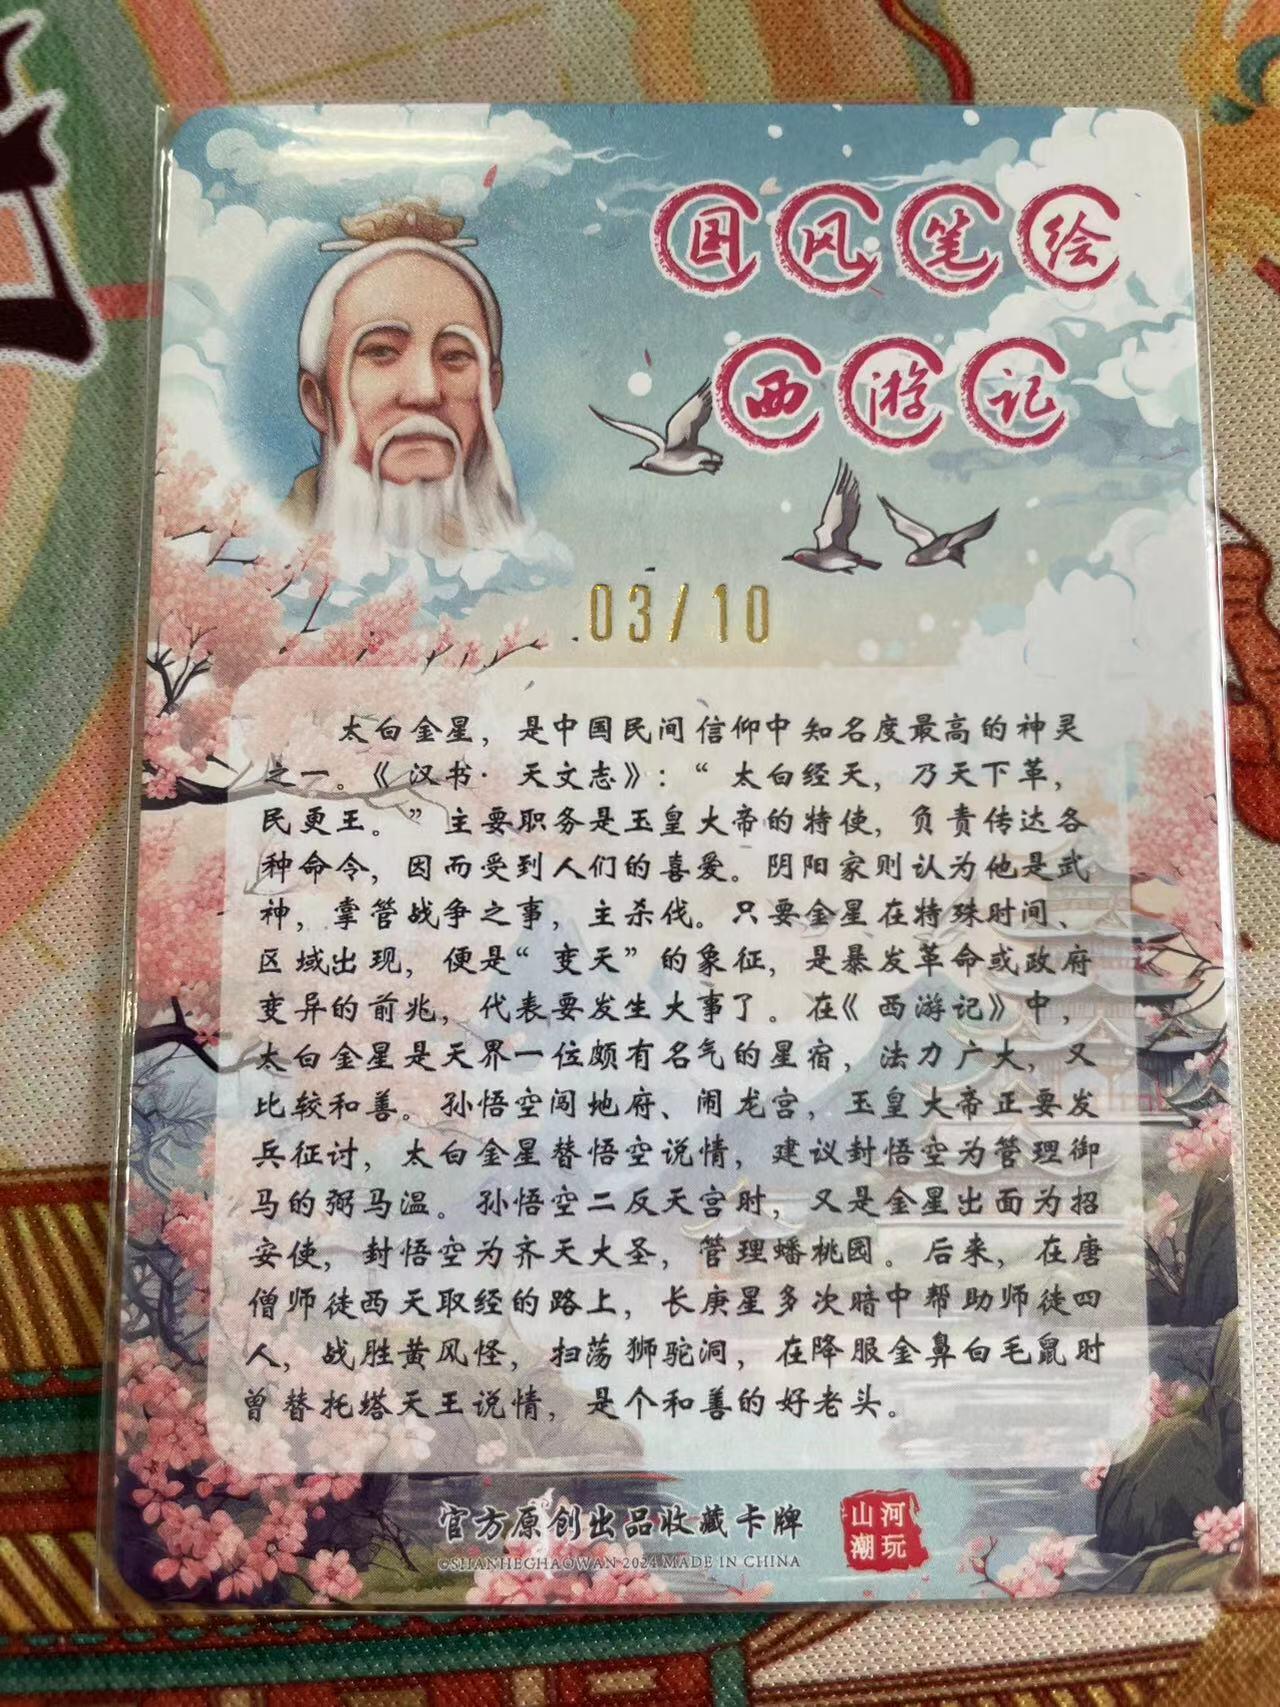 国风笔绘
西游记
03/10
太白金星，是中国民间信仰中知名度最高的神灵
之一。《汉书·天文志》：“太白经天，乃天下革，
民更王。”主要职务是玉皇大帝的特使，负责传达各
种命令，因而受到人们的喜爱。阴阳家则认为他是武
神，掌管战争之事，主杀伐。只要金星在特殊时间、
区域出现，便是“变天”的象征，是暴发革命或政府
变异的前兆，代表要发生大事了。在《西游记》中，
太白金星是天界一位颇有名气的星宿，法力广大，又
比较和善。孙悟空闯地府、闹龙宫，玉皇大帝正要发
兵征讨，太白金星替悟空说情，建议封悟空为管理御
马的弼马温。孙悟空二反天宫时，又是金星出面为招
安使，封悟空为齐天大圣，管理蟠桃园。后来，在唐
僧师徒西天取经的路上，长庚星多次暗中帮助师徒四
人，战胜黄风怪，扫荡狮驼洞，在降服金鼻白毛鼠时
曾替托塔天王说情，是个和善的好老头。
官方原创出品收藏卡牌
©SHANHEGHAOWAN 2024 MADE IN CHINA
山河
潮玩